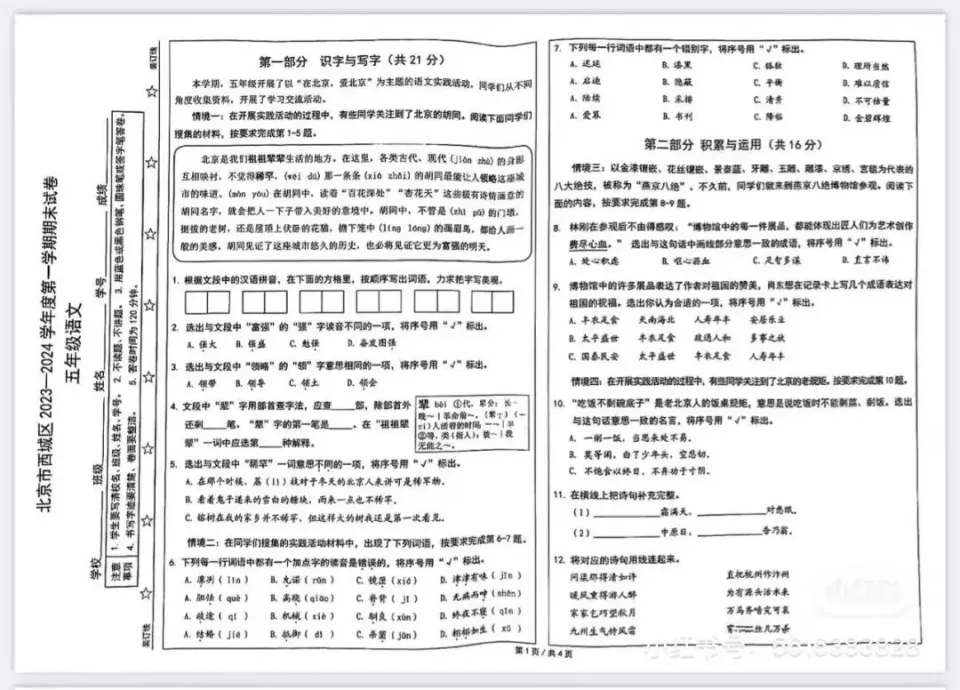 北京市西城区 2023—2024 学年度第一学期期末试卷
五年级语文
学校 班级 姓名 学号 成绩
注意事项
1. 学生要写清校名、班级、姓名、学号。 2. 不读题、不讲题。 3. 用蓝色或黑色钢笔、圆珠笔或签字笔答卷。
4. 书写字迹要清楚、卷面要整洁。 5. 答卷时间为 120 分钟。
装订线
装订线
第一部分 识字与写字（共 21 分）
本学期，五年级开展了以“在北京，爱北京”为主题的语文实践活动，同学们从不同
角度收集资料，开展了学习交流活动。
情境一：在开展实践活动的过程中，有些同学关注到了北京的胡同。阅读下面同学们
搜集的材料，按要求完成第 1-5 题。
北京是我们祖祖辈辈生活的地方。在这里，各类古代、现代 (jiàn zhù) 的身影
互相映衬，不足得稀罕，(wéi dú) 那一条条 (xiá zhǎi) 的胡同最能让人领略这座城
市的味道。(màn yóu) 在胡同中，读着“百花深处”“杏花天”这些极有诗情画意的
胡同名字，就会把人一下子带入美好的意境中。胡同中，不管是 (zhū pū) 的门墩，
挺拔的老树，还是屋顶上伏卧的花猫，檐下笼中 (líng lóng) 的画眉鸟，都给人画一
般的美感。胡同见证了这座城市悠久的历史，也必将见证它更为富强的明天。
1. 根据文段中的汉语拼音，在下面的方格里，按顺序写出词语。力求把字写美观。
2. 选出与文段中“富强”的“强”字读音不同的一项，将序号用“√”标出。
A. 强大 B. 强盛 C. 勉强 D. 奋发图强
3. 选出与文段中“领略”的“领”字意思相同的一项，将序号用“√”标出。
A. 领带 B. 领导 C. 领土 D. 领会
4. 文段中“辈”字用部首查字法，应查____部，除部首外
还剩____笔。“辈”字的第一笔是____。在“祖祖辈
辈”一词中应选第____种解释。
辈 bèi ①代，辈分：长~
5. 选出与文段中“稀罕”一词意思不同的一项，将序号用“√”标出。
A. 在那个时候，荔 (lì) 枝对于冬天的北京人来讲可是稀罕物。
B. 看着鬼子递来的雪白的糖块，雨来一点也不稀罕。
C. 榕树在我的家乡并不稀罕，但这样大的树我还是第一次看见。
情境二：在同学们搜集的实践活动材料中，出现了下列词语，按要求完成第 6-7 题。
6. 下列每一行词语中都有一个加点字的读音是错误的，将序号用“√”标出。
A. 凛冽 ( lǐn ) B. 允诺 ( rǔn ) C. 镜匣 ( xiá ) D. 津津有味 ( jīn )
A. 胆怯 ( què ) B. 高跷 ( qiāo ) C. 脊背 ( jǐ ) D. 无病而呻 ( shēn )
A. 歧途 ( qí ) B. 机械 ( xiè ) C. 驯良 ( xùn ) D. 终夜不寝 ( qǐn )
A. 结婚 ( jié ) B. 抵御 ( dǐ ) C. 杀菌 ( jūn ) D. 栩栩如生 ( xǔ )
7. 下列每一行词语中都有一个错别字，将序号用“√”标出。
A. 迟延 B. 漆黑 C. 骆驮 D. 理所当然
A. 启迪 B. 隐蔽 C. 平衡 D. 难以质信
A. 陆续 B. 采排 C. 清秀 D. 不可估量
A. 爱慕 B. 书刊 C. 降临 D. 金碧辉煌
第二部分 积累与运用（共 16 分）
情境三：以金漆镶嵌、花丝镶嵌、景泰蓝、牙雕、玉雕、雕漆、京绣、宫毯为代表的
八大绝技，被称为“燕京八绝”。不久前，同学们就来到燕京八绝博物馆参观。阅读下
面的内容，按要求完成第 8-9 题。
8. 林刚在参观后不由得感叹：“博物馆中的每一件展品，都能体现出匠人们为艺术创作
费尽心血。” 选出与这句话中画线部分意思一致的成语，将序号用“√”标出。
A. 处心积虑 B. 呕心沥血 C. 足智多谋 D. 直言不讳
9. 博物馆中的许多展品表达了作者对祖国的赞美。肖东想在记录卡上写几个成语表达对
祖国的祝福。选出你认为合适的一项，将序号用“√”标出。
A. 丰衣足食 天南海北 人寿年丰 安居乐业
B. 太平盛世 丰衣足食 政通人和 多事之秋
C. 国泰民安 太平盛世 丰衣足食 人寿年丰
情境四：在开展实践活动的过程中，有些同学关注到了北京的老规矩。按要求完成第 10 题。
10. “吃饭不剩碗底子”是老北京人的饭桌规矩，意思是说吃饭时不能剩菜、剩饭。选出
与这句话意思一致的名言，将序号用“√”标出。
A. 一粥一饭，当思来处不易。
B. 莫等闲，白了少年头，空悲切。
C. 不饱食以终日，不弃功于寸阴。
11. 在横线上把诗句补充完整。
（1）____________霜满天，____________对愁眠。
（2）____________中原日，____________告乃翁。
12. 将对应的诗句用线连起来。
问渠那得清如许 直把杭州作汴州
暖风熏得游人醉 为有源头活水来
家家乞巧望秋月 万马齐喑究可哀
九州生气恃风雷 穿尽红丝几万条
第 1 页 / 共 4 页